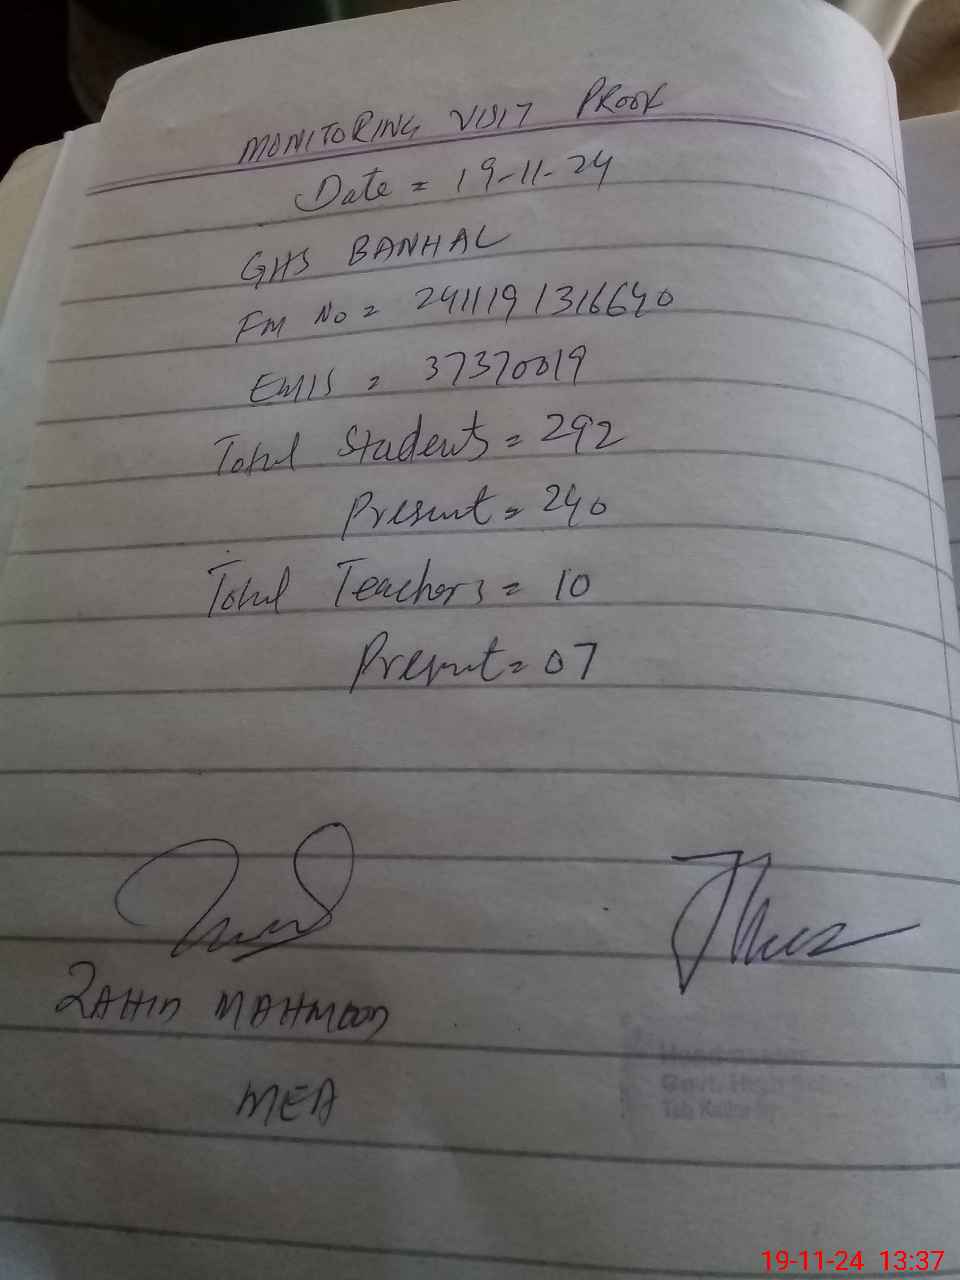 MONITORING VISIT PROOF
Date = 19-11-24
GHS BANHAL
FM No = 241119 1316640
EMIS = 37370019
Total Students = 292
Present = 240
Total Teachers = 10
Present = 07
ZAHID MAHMOOD
MEA
Govt. High
19-11-24 13:37